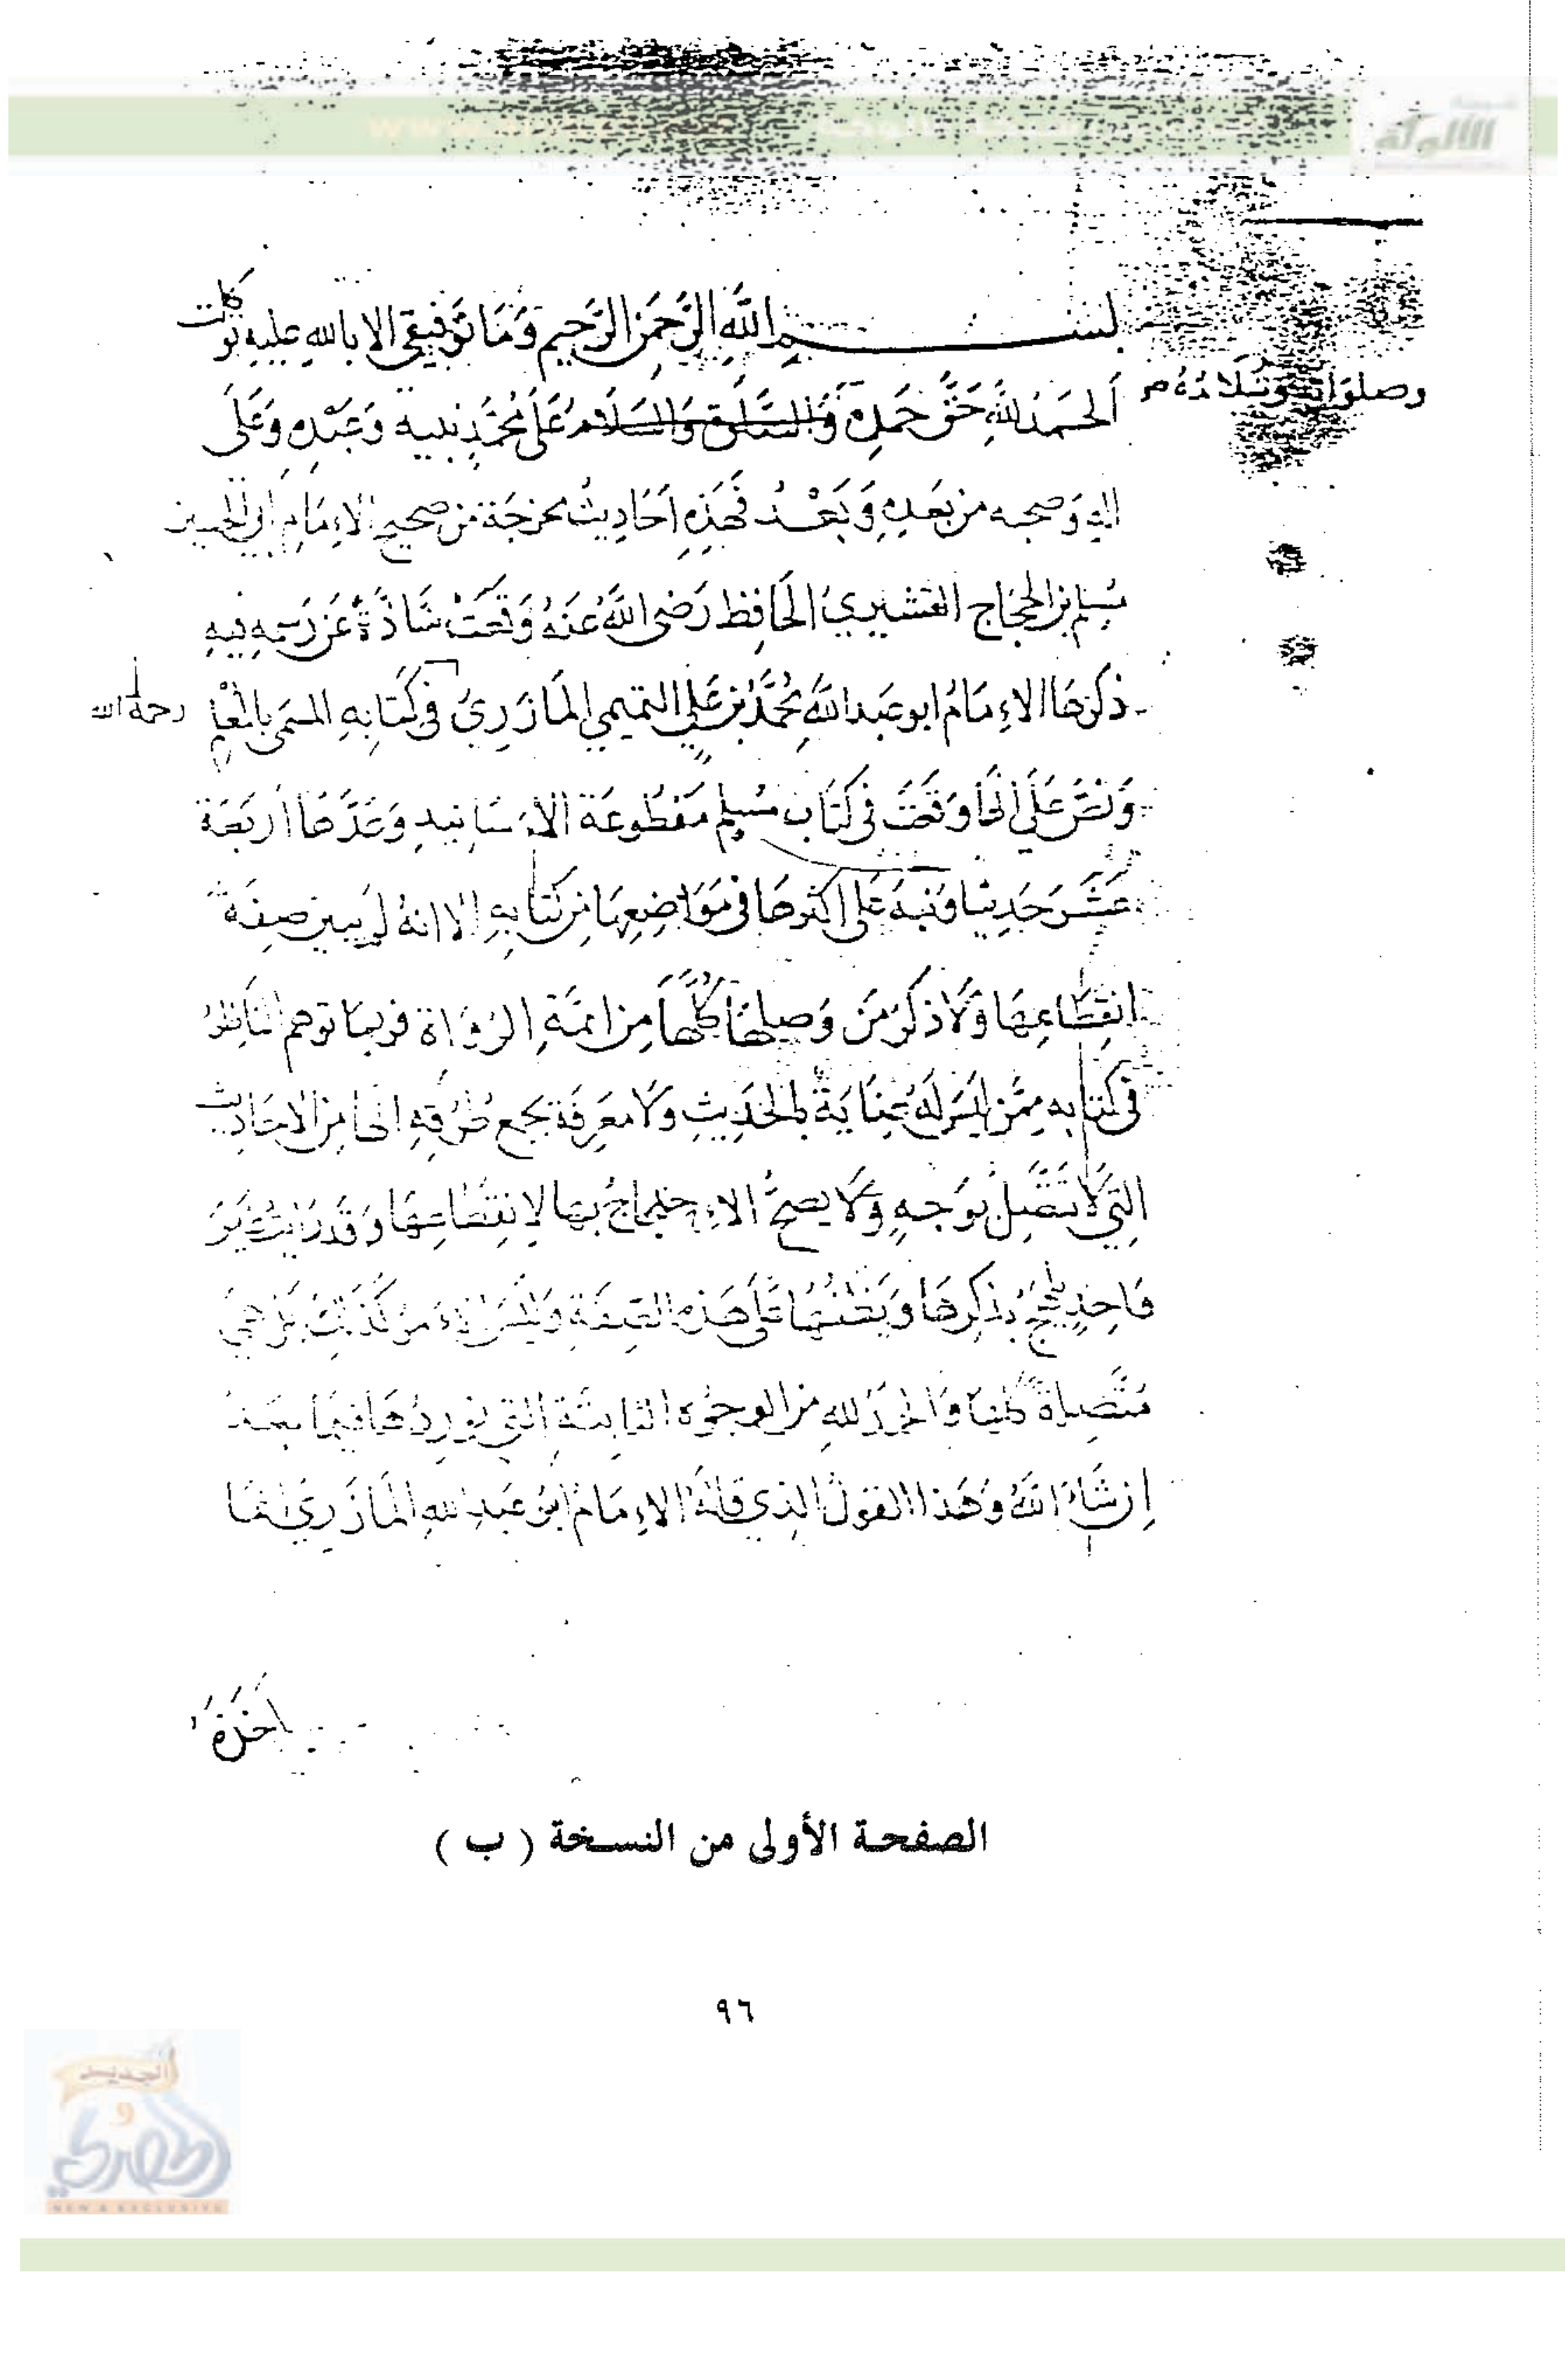 بسم الله الرحمن الرحيم وما توفيقي الا بالله عليه توكلت
وصلواته وسلامه
الحمد لله حق حمده والصلوة والسلام على محمد نبيه وعبده وعلى
اله وصحبه من بعده وبعد فهذه احاديث مخرجة من صحيح الامام ابي الحسين
مسلم بن الحجاج القشيري الحافظ رضي الله عنه وقعت شاذة عن رسمه فيه
ذكرها الامام ابو عبد الله محمد بن علي التميمي المازري في كتابه المسمى بالمعلم
رحمه الله
ونص على انها وقعت في كتاب مسلم مقطوعة الاسانيد وعدها اربعة
عشر حديثا ونبه على اكثرها في مواضعها من كتابه الا انه لم يبين صفة
انقطاعها ولا ذكر من وصلها كلها من ائمة الرواة فربما توهم الناظر
في كتابه ممن ليس له عناية بالحديث ولا معرفة بجمع طرقه انها من الاحاديث
التي لا تتصل بوجه ولا يصح الاحتجاج بها لانقطاعها وقد رايت غير
واحد يلهج بذكرها ويظنها على هذه الصفة وليس الامر كذلك بل هي
متصلة كلها والحمد لله من الوجوه الثابتة التي نوردها فيما بعد
ان شاء الله وهذا القول الذي قاله الامام ابو عبد الله المازري انما
اخذه
الصفحة الأولى من النسخة ( ب )
٩٦
الألوكة
الجديد
و
الحصري
NEW & EXCLUSIVE